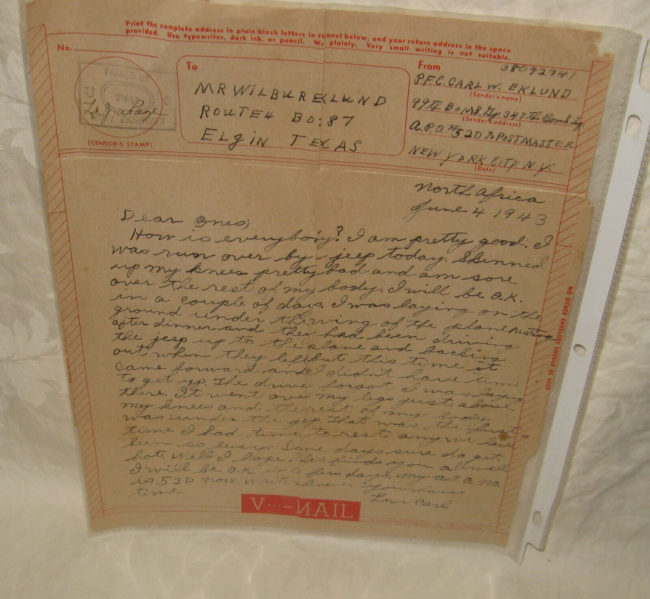 Print the complete address in plain block letters in the panel below, and your return address in the space
provided. Use typewriter, dark ink, or pencil. Write plainly. Very small writing is not suitable.
No.
PASSED BY
(CENSOR'S STAMP)
To
MR WILBUR EKLUND
ROUTE 4 BO: 87
ELgin TEXAS
From
38092741
PFC. CARL W. EKLUND
(Sender's name)
99th BOMB. Gp 347th Bomb Sq
(Sender's address)
A.P.O. #520 % POSTMASTER
NEW YORK CITY N.Y.
(Date)
North Africa
June 4 1943
Dear Ones;
How is everybody? I am pretty good. I
was run over by a jeep today. Skinned
up my knees pretty bad and am sore
over the rest of my body. I will be O.K.
in a couple of days. I was laying on the
ground under the wing of the plane resting
after dinner and they had been driving
the jeep up to the plane and backing
out when they left but this time it
came forward and I didn't have time
to get up. The drive forgot I was laying
there. It went over my legs just above
my knees and the rest of my body
was under the jeep. That was the first
time I had time to rest any we have
been so busy. Some days sure do get
hot. Well I hope this finds you all well
I will be O.K. in a few days. My A.P.O. No
is 520 now. Write when you have
time
Love Carl
V···—MAIL